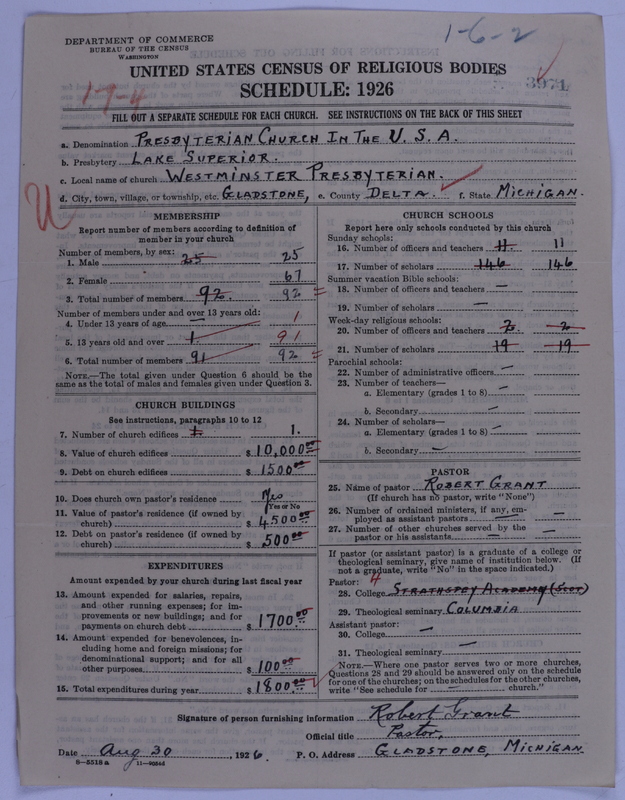 DEPARTMENT OF COMMERCE
BUREAU OF THE CENSUS
WASHINGTON
1-6-2
UNITED STATES CENSUS OF RELIGIOUS BODIES
SCHEDULE: 1926
3971
1-7-4
FILL OUT A SEPARATE SCHEDULE FOR EACH CHURCH. SEE INSTRUCTIONS ON THE BACK OF THIS SHEET
a. Denomination PRESBYTERIAN CHURCH IN THE U. S. A.
b. Presbytery LAKE SUPERIOR.
c. Local name of church WESTMINSTER PRESBYTERIAN.
d. City, town, village, or township, etc. GLADSTONE, e. County DELTA. f. State MICHIGAN.
U
MEMBERSHIP
Report number of members according to definition of
member in your church
Number of members, by sex:
1. Male 25 25
2. Female 67
3. Total number of members 92. 92
Number of members under and over 13 years old:
4. Under 13 years of age 1
5. 13 years old and over 1 91
6. Total number of members 91 92
NOTE.—The total given under Question 6 should be the
same as the total of males and females given under Question 3.
CHURCH BUILDINGS
See instructions, paragraphs 10 to 12
7. Number of church edifices 1. 1.
8. Value of church edifices $ 10,000.00
9. Debt on church edifices $ 1500.00
10. Does church own pastor's residence Yes
Yes or No
11. Value of pastor's residence (if owned by
church) $ 4500.00
12. Debt on pastor's residence (if owned by
church) $ 500.00
EXPENDITURES
Amount expended by your church during last fiscal year
13. Amount expended for salaries, repairs,
and other running expenses; for im-
provements or new buildings; and for
payments on church debt $ 1700.00
14. Amount expended for benevolences, in-
cluding home and foreign missions; for
denominational support; and for all
other purposes $ 100.00
15. Total expenditures during year $ 1800.00
CHURCH SCHOOLS
Report here only schools conducted by this church
Sunday schools:
16. Number of officers and teachers 11 11
17. Number of scholars 146 146
Summer vacation Bible schools:
18. Number of officers and teachers —
19. Number of scholars —
Week-day religious schools:
20. Number of officers and teachers 2 2
21. Number of scholars 19 19
Parochial schools:
22. Number of administrative officers —
23. Number of teachers—
a. Elementary (grades 1 to 8) —
b. Secondary —
24. Number of scholars—
a. Elementary (grades 1 to 8) —
b. Secondary —
PASTOR
25. Name of pastor ROBERT GRANT
(If church has no pastor, write "None")
26. Number of ordained ministers, if any, em-
ployed as assistant pastors —
27. Number of other churches served by the
pastor or his assistants —
If pastor (or assistant pastor) is a graduate of a college or
theological seminary, give name of institution below. (If
not a graduate, write "No" in the space indicated.)
Pastor: 4
28. College STRATHSPEY ACADEMY (SCOT)
29. Theological seminary COLUMBIA
Assistant pastor:
30. College —
31. Theological seminary —
NOTE.—Where one pastor serves two or more churches,
Questions 28 and 29 should be answered only on the schedule
for one of the churches; on the schedules for the other churches,
write "See schedule for — church."
Signature of person furnishing information Robert Grant
Official title Pastor,
Date Aug 30 1926. P. O. Address GLADSTONE, MICHIGAN
8—5518 a